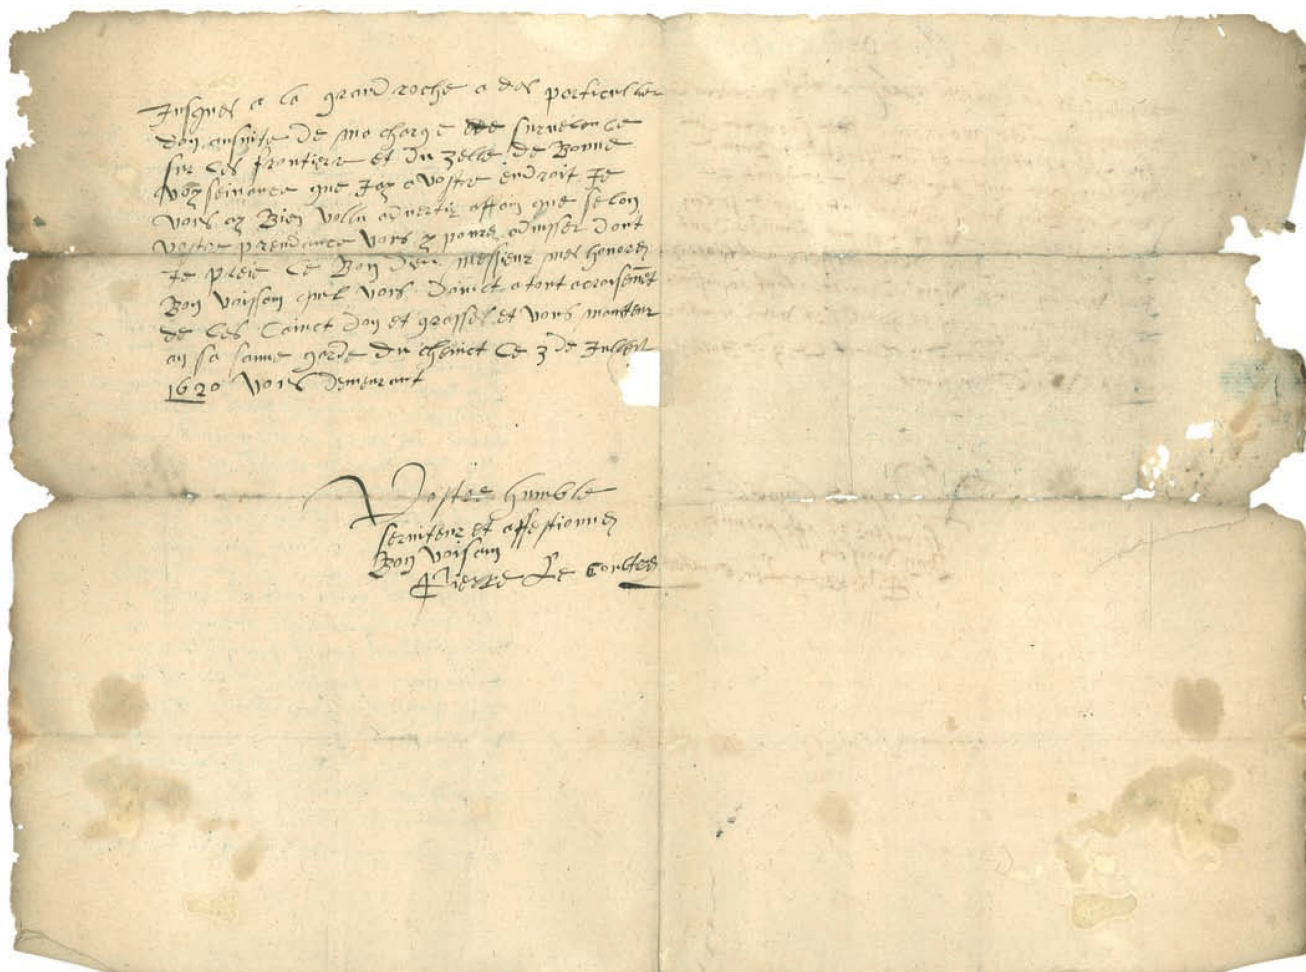 Jusques a la grand roche a des particullier
don ansuite de ma charge de surveliance
sur les frontiere et du zelle de Bonne
voyseinance que Jay a vostre endroit Je
vous ay Bien vollu advertir affain que selon
vostre prendance vous y poures adviser dont
Je preie le Bon dieu messieur mes honores
Bon voissain quil vous dainct a tout acroisement
de ses sainct don et grasses et vous maintenir
an sa sainte garde du chenict ce 3 de Julleit
1620 vous demeurant
Vostre humble
serviteur et affestionnes
Bon voisain
Pierre Le Coultre